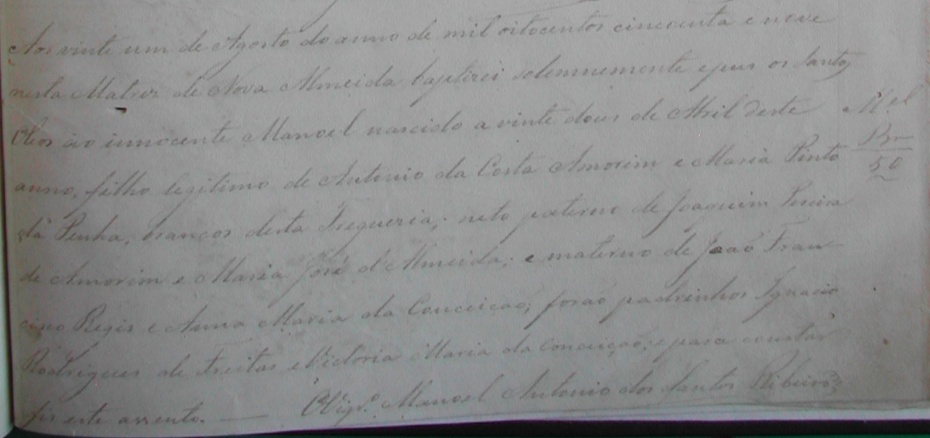 Aos vinte um de Agosto do anno de mil oitocentos cincoenta e nove
nesta Matriz de Nova Almeida baptizei solemnemente e puz os Santos
Oleos ao innocente Manoel nascido a vinte dous de Abril deste
anno, filho legitimo de Antonio da Costa Amorim e Maria Pinto
da Penha, brancos desta Freguezia; neto paterno de Joaquim Pereira
de Amorim e Maria José d'Almeida; e materno de João Fran
cisco Regis e Anna Maria da Conceição; forão padrinhos Ignacio
Rodrigues de Freitas e Victoria Maria da Conceição; e para constar
fiz este assento. O Vigr.º Manoel Antonio dos Santos Ribeiro
M.el
Br
50